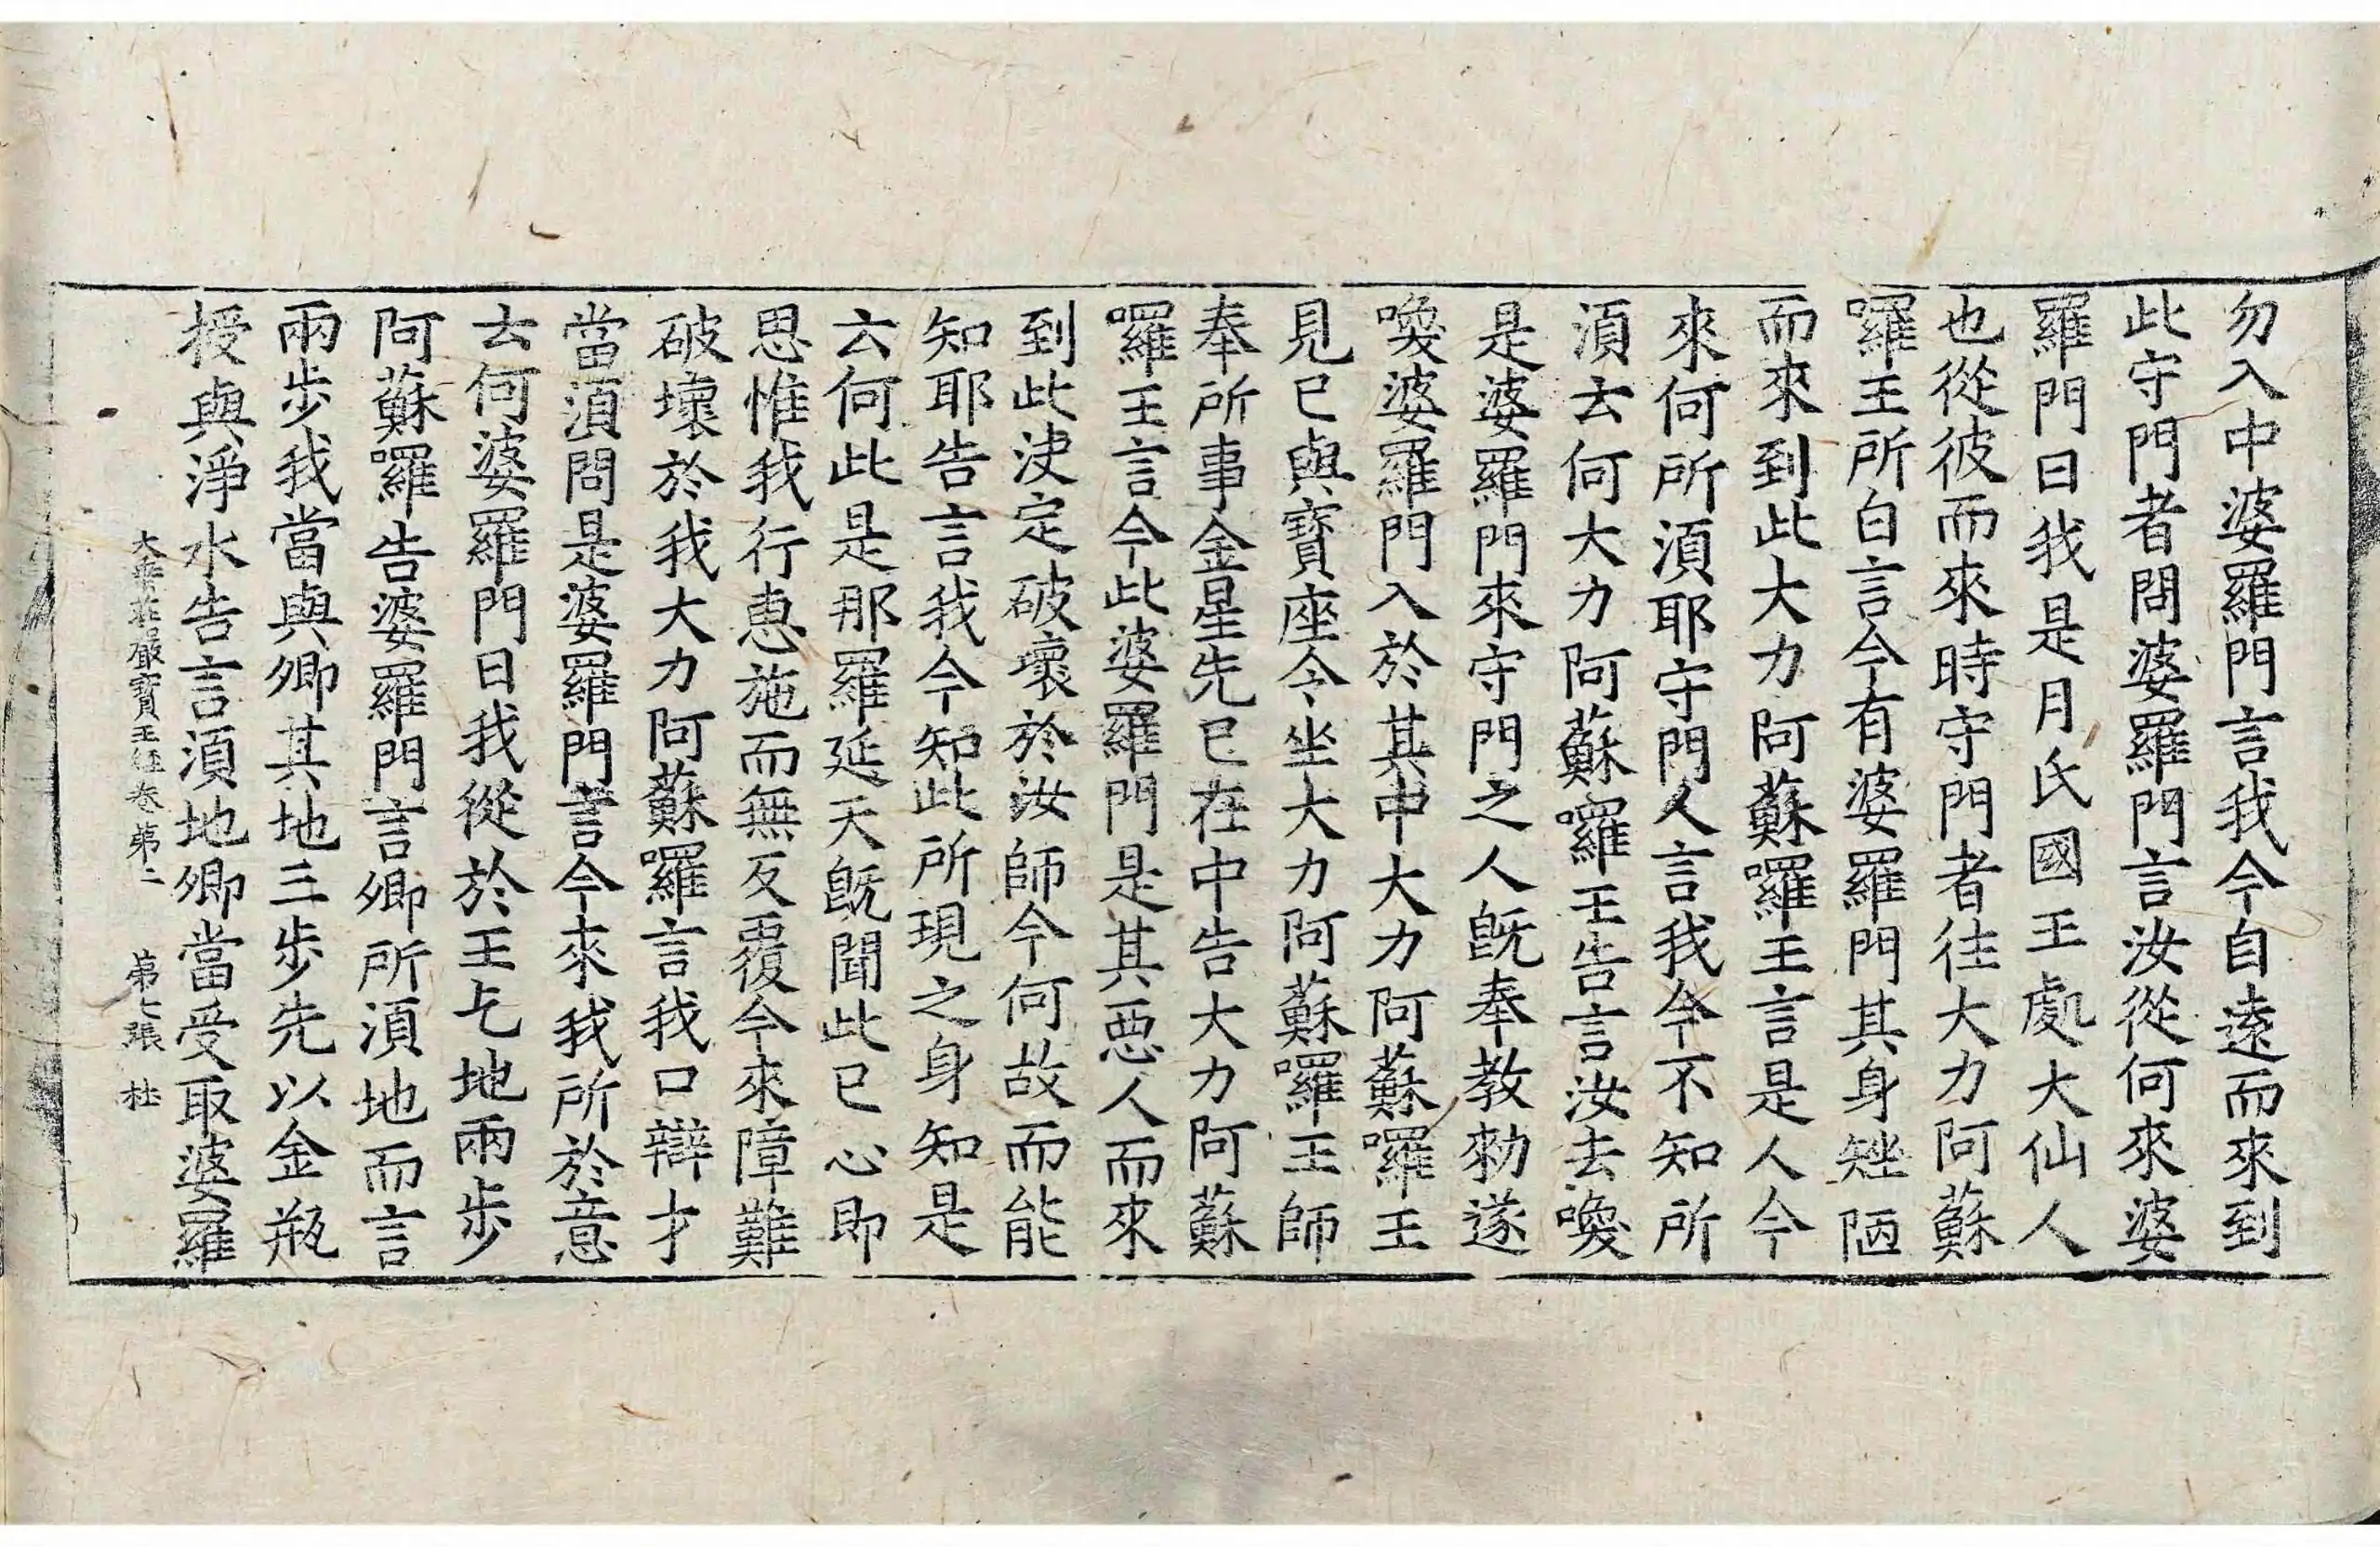 勿入中婆羅門言我今自遠而來到
此守門者問婆羅門言汝從何來婆
羅門曰我是月氏國王處大仙人
也從彼而來時守門者往大力阿蘇
囉王所白言今有婆羅門其身矬陋
而來到此大力阿蘇囉王言是人今
來何所須耶守門人言我今不知所
須去何大力阿蘇囉王告言汝去喚
是婆羅門來守門之人旣奉教勑遂
喚婆羅門入於其中大力阿蘇囉王
見已與寶座令坐大力阿蘇囉王師
奉所事金星先已在中告大力阿蘇
囉王言今此婆羅門是其惡人而來
到此决定破壞於汝師今何故而能
知耶告言我今知此所現之身知是
云何此是那羅延天旣聞此已心即
思惟我行惠施而無反覆今來障難
破壞於我大力阿蘇囉言我口辯才
當須問是婆羅門言今來我所於意
云何婆羅門曰我從於王乞地兩步
阿蘇囉告婆羅門言卿所須地而言
兩步我當與卿其地三步先以金瓶
授與淨水告言須地卿當受取婆羅
大乘莊嚴寶王經卷第二 第七張 杜